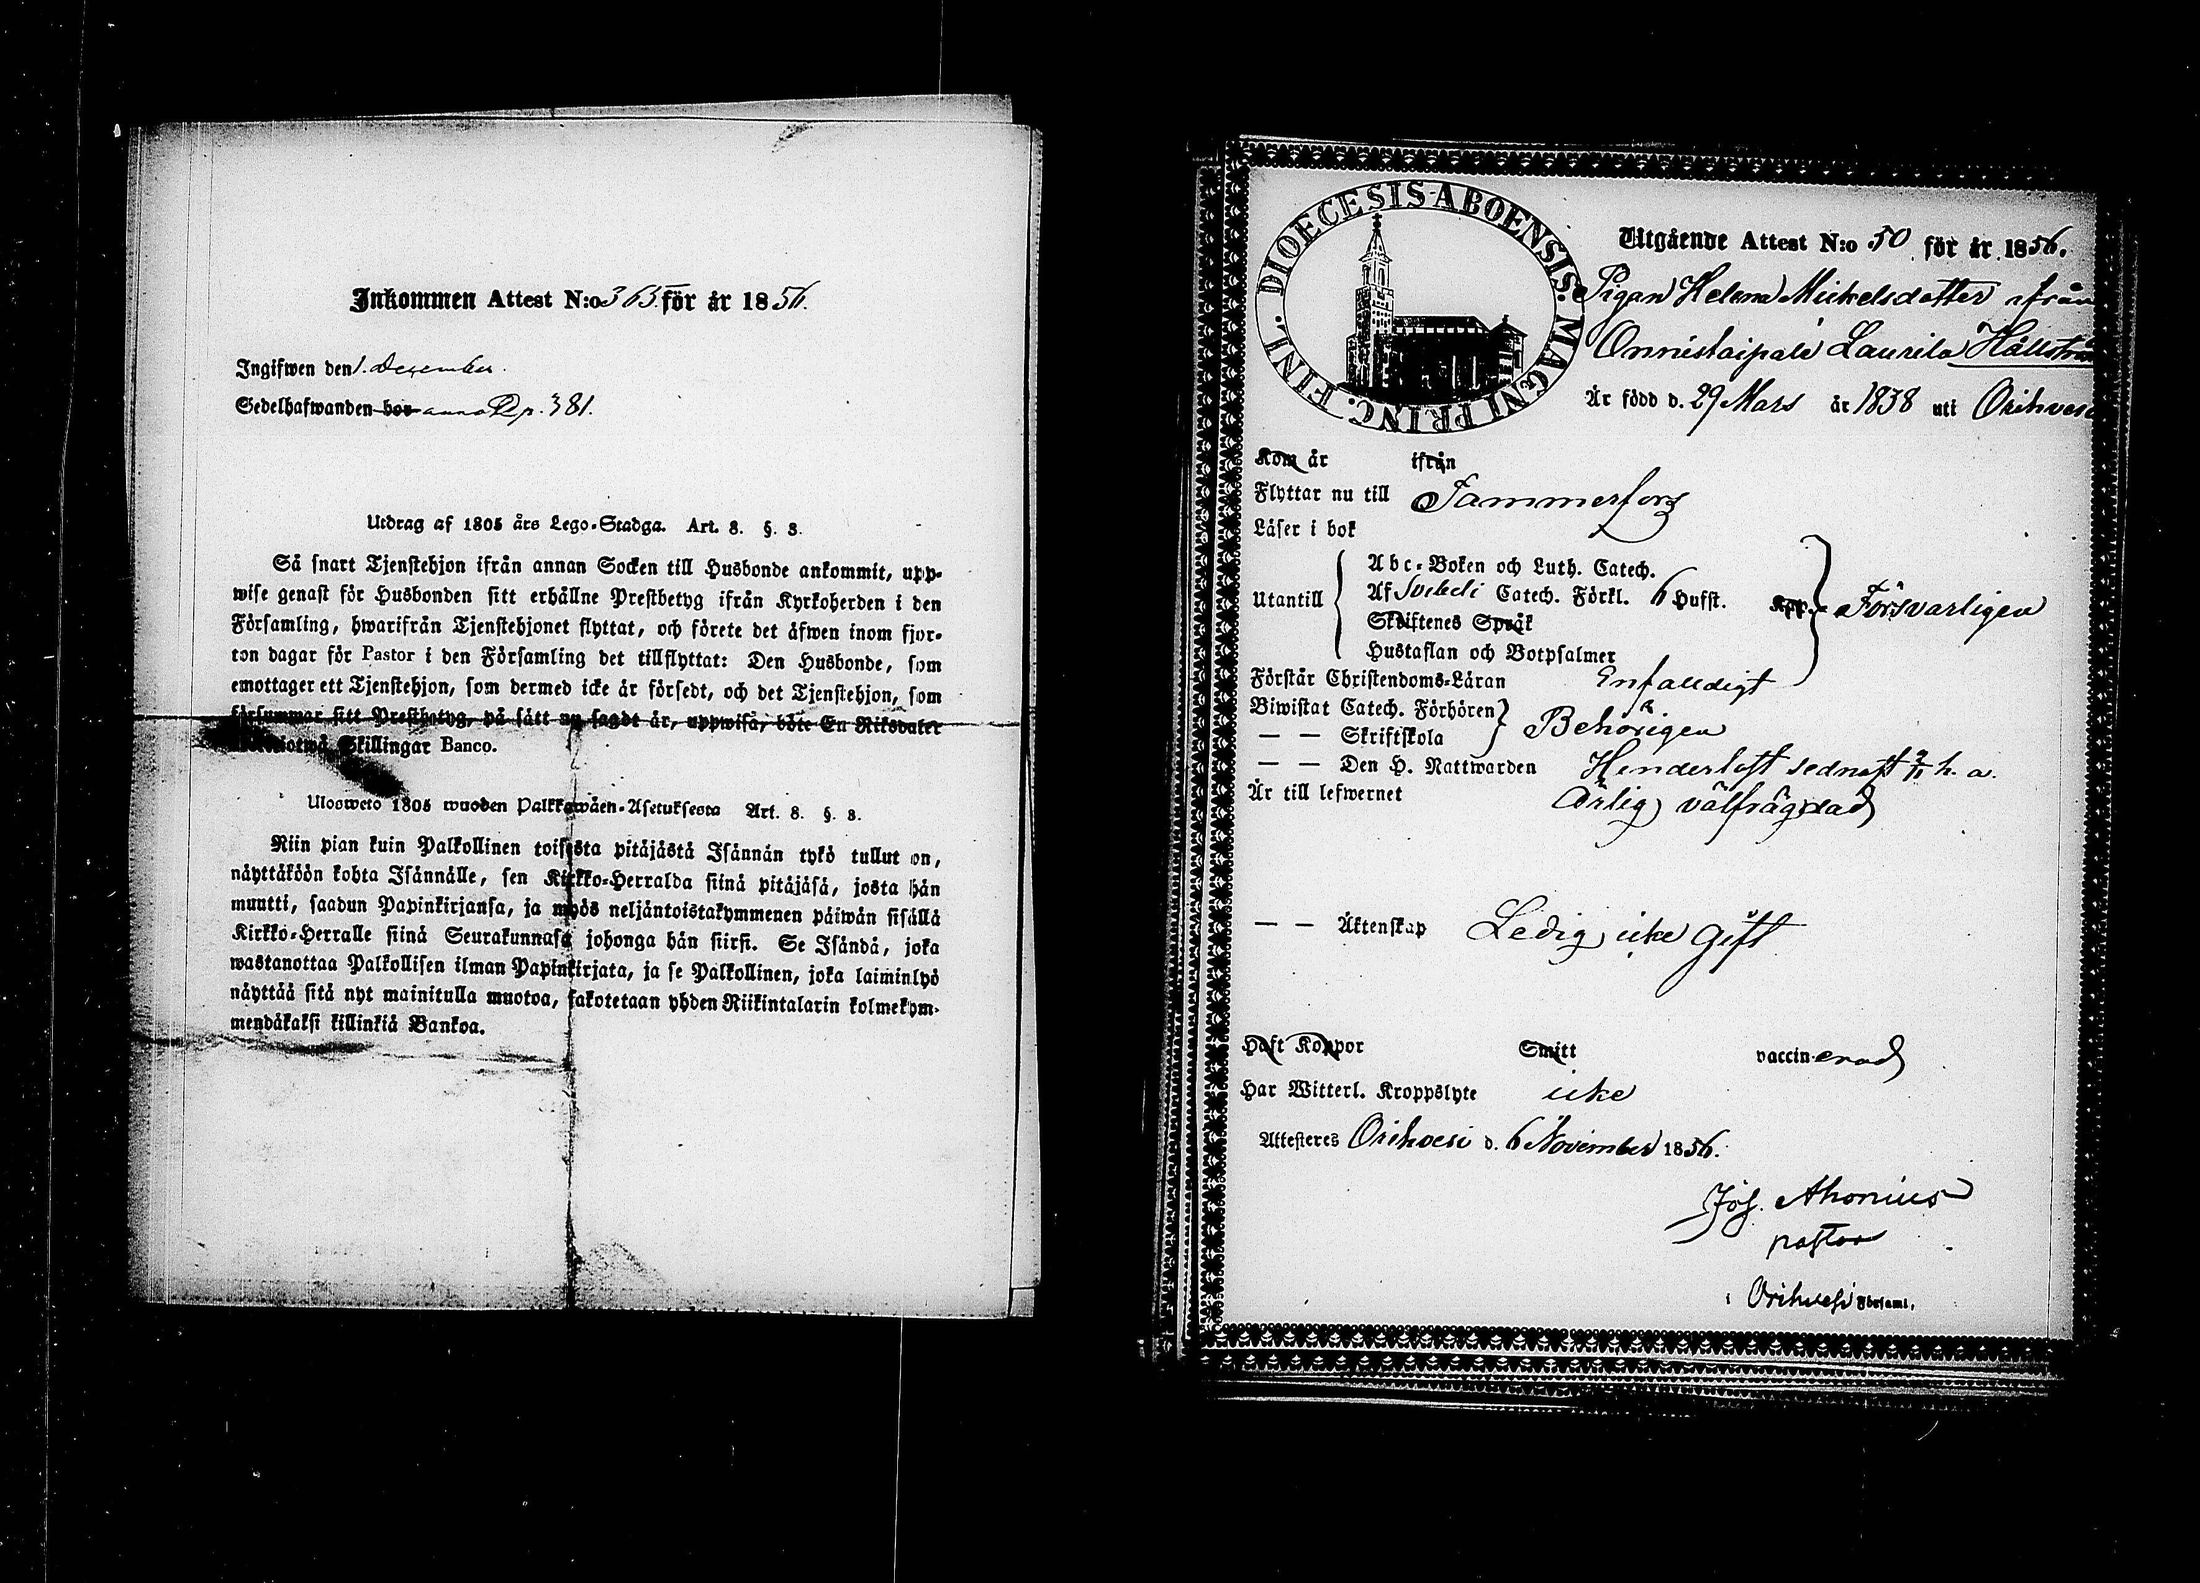 Inkommen Attest N:o 363 för år 1856.
Ingifwen den 1. December.
Sedelhafwanden bor anno p. 381.
Utdrag af 1805 års Lego-Stadga. Art. 8. §. 3.
Så snart Tjenstehjon ifrån annan Socken till Husbonde ankommit, upp-
wise genast för Husbonden sitt erhållne Prestbetyg ifrån Kyrkoherden i den
Församling, hwarifrån Tjenstehjonet flyttat, och förete det äfwen inom fjor-
ton dagar för Pastor i den Församling det tillflyttat: Den Husbonde, som
emottager ett Tjenstehjon, som dermed icke är försedt, och det Tjenstehjon, som
försummar sitt Prestbetyg, på sätt nu sagdt är, uppwisa, böte En Riksdaler
Skillingar Banco.
Ulosweto 1805 wuoden Palkkawäen-Asetuksesta Art. 8. §. 3.
Niin pian kuin Palkollinen toisesta pitäjästä Isännän tykö tullut on,
näyttäköön kohta Isännälle, sen Kirkko-Herralda siinä pitäjäsä, josta hän
muutti, saadun Papinkirjansa, ja myös neljäntoistakymmenen päiwän sisällä
Kirkko-Herralle siinä Seurakunnasa johonga hän siirsi. Se Isändä, joka
wastanottaa Palkollisen ilman Papinkirjata, ja se Palkollinen, joka laiminlyö
näyttää sitä nyt mainitulla muotoa, sakotetaan yhden Riikintalarin kolmekym-
mendäkaksi killinkiä Bankoa.
DIOECESIS ABOENSIS. MAGNI PRINC. FINL.
Utgående Attest N:o 50 för år 1856.
Pigan Helena Mickelsdotter ifrån
Onnistaipale Laurila Hällström
Är född d. 29 Mars år 1838 uti Orihvesi
Kom år ifrån
Flyttar nu till Tammerfors
Läser i bok
Utantill
Abc-Boken och Luth. Catech.
Af Svebeli Catech. Förkl. 6 Hufst. Kpp.
Skriftenes Språk
Hustaflan och Botpsalmer
Försvarligen
Förstår Christendoms-Läran Enfaldigt
Biwistat Catech. Förhören
— — Skriftskola
Behörigen
— — Den H. Nattwarden sednast h. a.
Är till lefwernet Ärlig välfrägdad
— — Äktenskap Ledig icke gift
Haft Koppor Smitt vaccinerad
Har Witterl. Kroppslyte icke
Attesteres Orihvesi d. 6 November 1856.
Jos. Ahonius
pastor
i Orihvesi Församl.